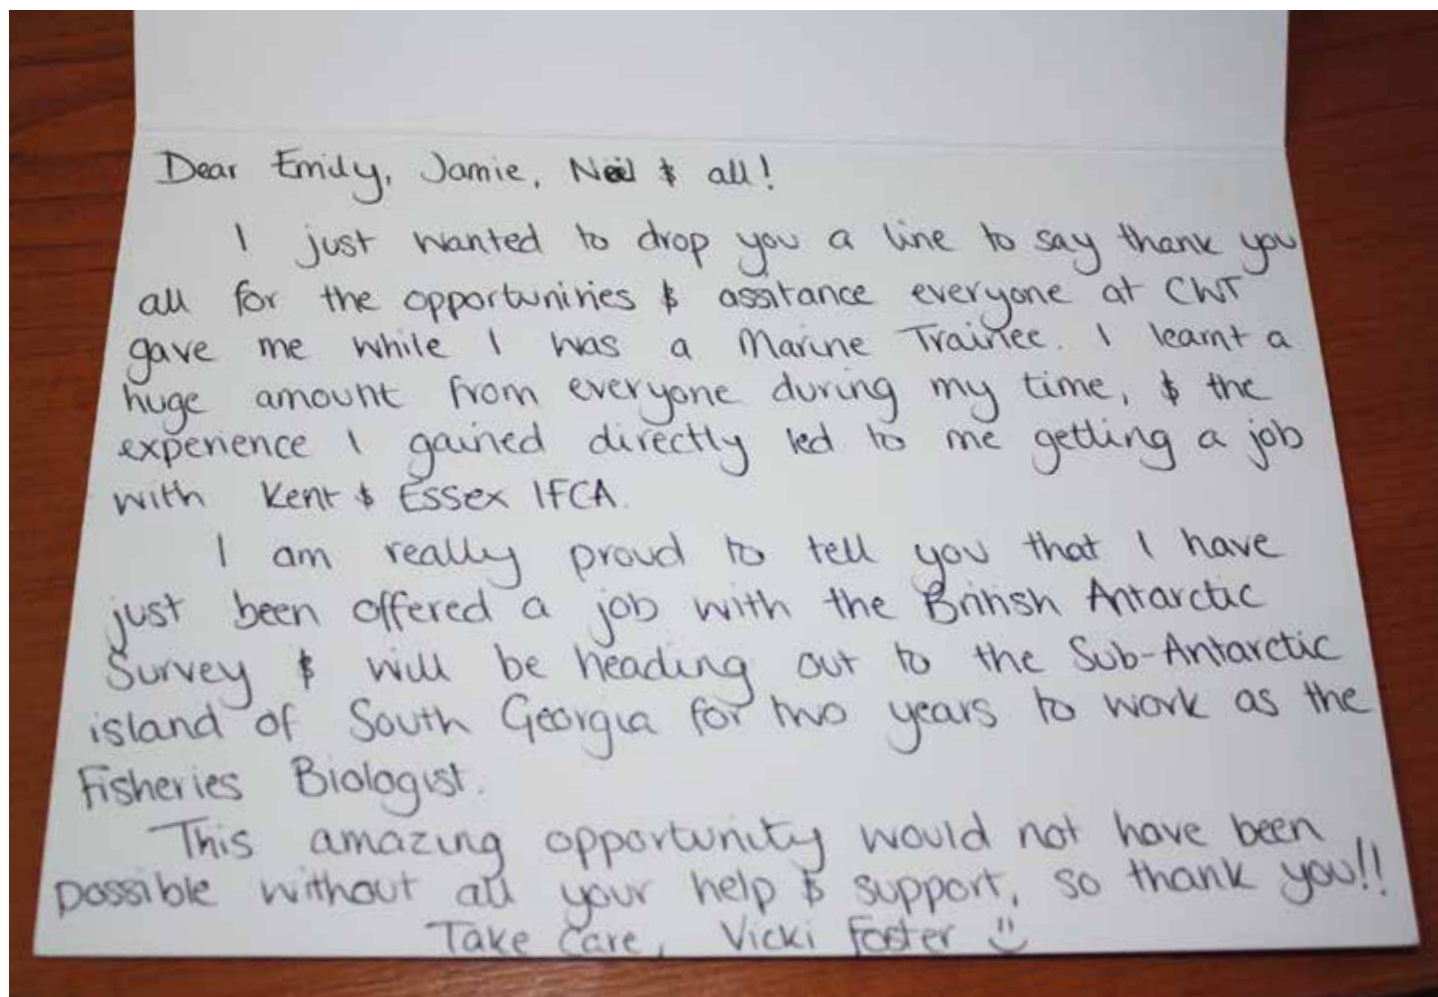 Dear Emily, Jamie, Neil & all!
I just wanted to drop you a line to say thank you
all for the opportuninies & assitance everyone at CWT
gave me while I was a Marine Trainee. I learnt a
huge amount from everyone during my time, & the
experience I gained directly led to me getting a job
with Kent & Essex IFCA.
I am really proud to tell you that I have
just been offered a job with the British Antarctic
Survey & will be heading out to the Sub-Antarctic
island of South Georgia for two years to work as the
Fisheries Biologist.
This amazing opportunity would not have been
possible without all your help & support, so thank you!!
Take Care, Vicki Foster